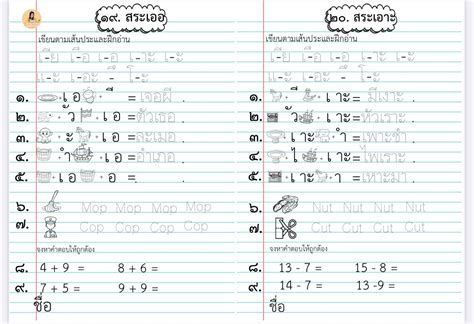 ๑๙. สระเออ
เขียนตามเส้นประและฝึกอ่าน
เ-ีย เ-ือ เ-อ เ-าะ เ-ะ
แ-ะ เ-อะ - โ-ะ
๑. เ อ ี = เจอผี
๒. ั ว เ อ = หัวเธอ
๓. ะ เ อ = ละเมอ
๔. ำ เ อ = อำเภอ
๕. เ อ =
๖. Mop Mop Mop Mop
๗. Cop Cop Cop Cop
จงหาคำตอบให้ถูกต้อง
๘. 4 + 9 = 8 + 6 =
๙. 7 + 5 = 9 + 9 =
ชื่อ
๒๐. สระเอาะ
เขียนตามเส้นประและฝึกอ่าน
เ-ีย เ-ือ เ-อ เ-าะ เ-ะ
แ-ะ เ-อะ - โ-ะ
๑. ี เ าะ = มีเงาะ
๒. ั ว เ าะ = หัวเราะ
๓. เ าะ ำ = เพาะชำ
๔. ไ เ าะ = ไพเราะ
๕. เ าะ า = เหาะมา
๖. Nut Nut Nut Nut
๗. Cut Cut Cut Cut
จงหาคำตอบให้ถูกต้อง
๘. 13 - 7 = 15 - 8 =
๙. 14 - 7 = 13 -9 =
ชื่อ